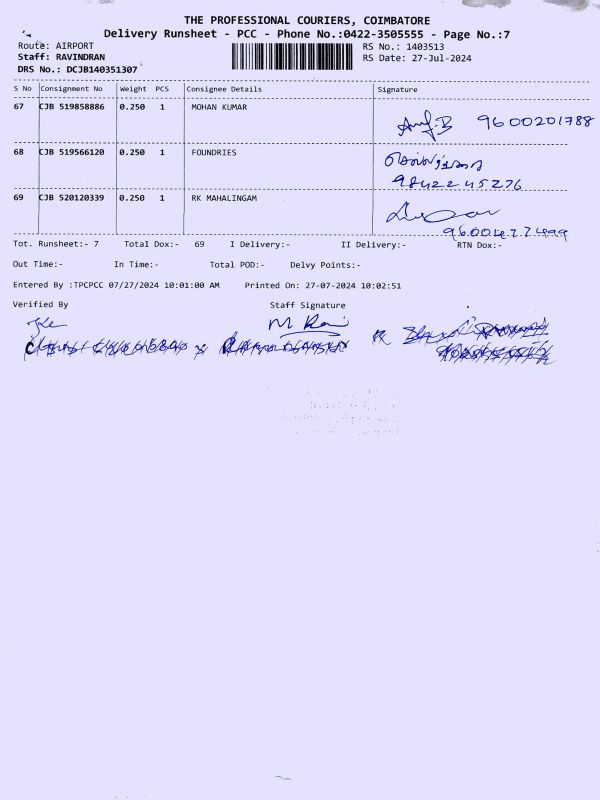 THE PROFESSIONAL COURIERS, COIMBATORE
Delivery Runsheet - PCC - Phone No.:0422-3505555 - Page No.:7
Route: AIRPORT RS No.: 1403513
Staff: RAVINDRAN RS Date: 27-Jul-2024
DRS No.: DCJB140351307
S No Consignment No Weight PCS Consignee Details Signature
67 CJB 519858886 0.250 1 MOHAN KUMAR
9600201788
68 CJB 519566120 0.250 1 FOUNDRIES
9842245276
69 CJB 520120339 0.250 1 RK MAHALINGAM
Tot. Runsheet:- 7 Total Dox:- 69 I Delivery:- II Delivery:- RTN Dox:-
Out Time:- In Time:- Total POD:- Delvy Points:-
Entered By :TPCPCC 07/27/2024 10:01:00 AM Printed On: 27-07-2024 10:02:51
Verified By Staff Signature